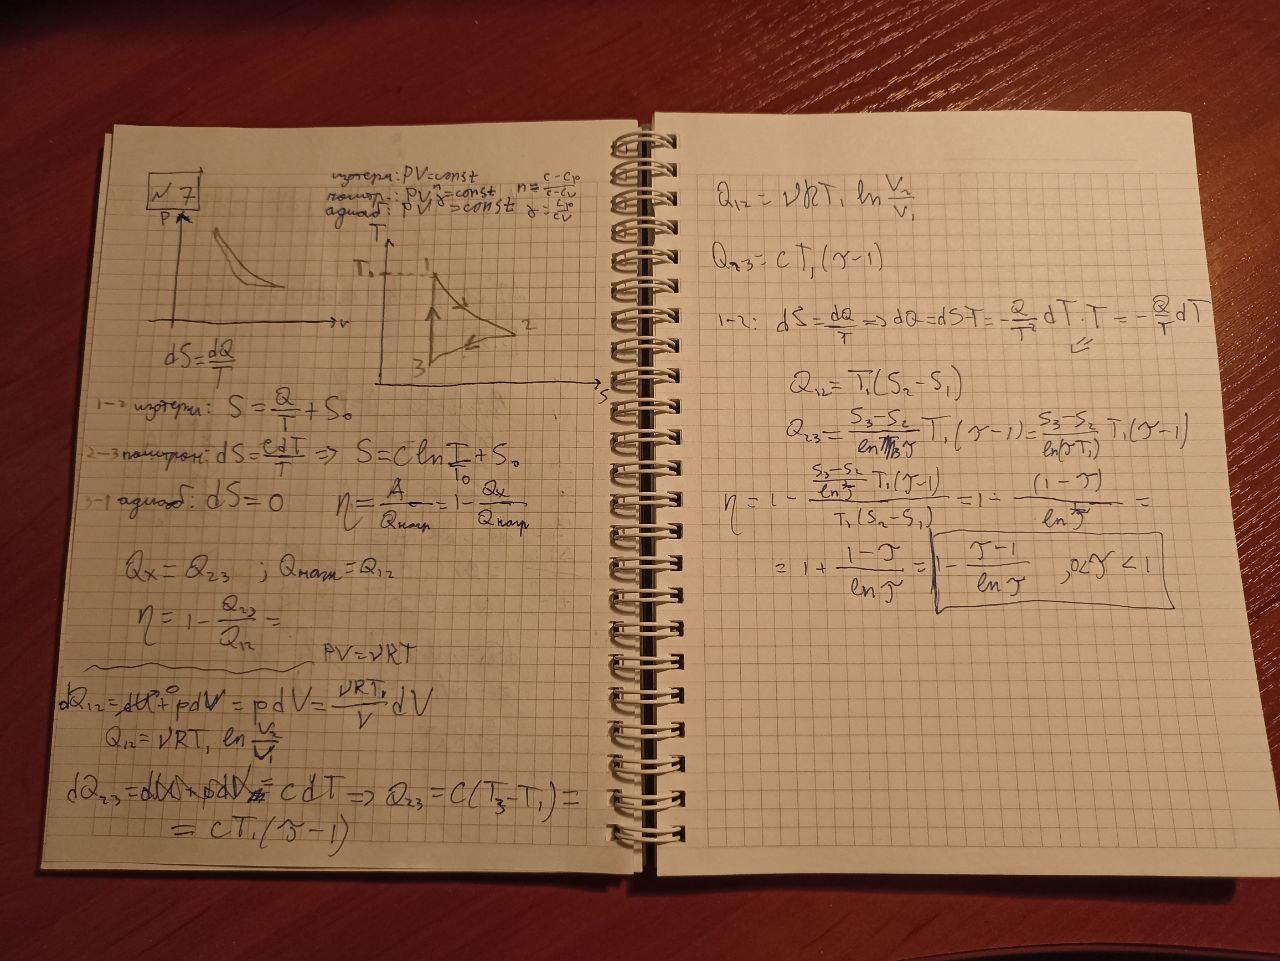 № 7
изотерм: PV=const
политр.: PVⁿ=const n=\frac{C-C_p}{C-C_V}
адиаб: PV^γ=const γ=\frac{C_p}{C_V}
P
V
T
T₁
1
2
3
S
dS=\frac{dQ}{T}
1-2 изотерм: S=\frac{Q}{T}+S₀
2-3 политроп: dS=\frac{CdT}{T} ⇒ S=C ln\frac{T}{T₀}+S₀
3-1 адиаб: dS=0 η=\frac{A}{Q_{нагр}}=1-\frac{Q_x}{Q_{нагр}}
Q_x=Q₂₃ ; Q_{нагр}=Q₁₂
η=1-\frac{Q₂₃}{Q₁₂}=
PV=νRT
dQ₁₂=dU⁰+pdV=pdV=\frac{νRT₁}{V}dV
Q₁₂=νRT₁ ln\frac{V₂}{V₁}
dQ₂₃=dU+pdV=CdT⇒Q₂₃=C(T₃-T₁)=
=CT₁(τ-1)
Q₁₂=νRT₁ ln\frac{V₂}{V₁}
Q₂₃=CT₁(τ-1)
1-2: dS=\frac{dQ}{T}⇒dQ=dS·T=-\frac{Q}{T²}dT·T=-\frac{Q}{T}dT
Q₁₂=T₁(S₂-S₁)
Q₂₃=\frac{S₃-S₂}{ln τ}T₁(τ-1)=\frac{S₃-S₂}{ln(τT₁)}T₁(τ-1)
η=1-\frac{\frac{S₃-S₂}{ln τ}T₁(τ-1)}{T₁(S₂-S₁)}=1-\frac{(1-τ)}{ln τ}=
=1+\frac{1-τ}{ln τ}=1-\frac{τ-1}{ln τ} ,0<τ<1